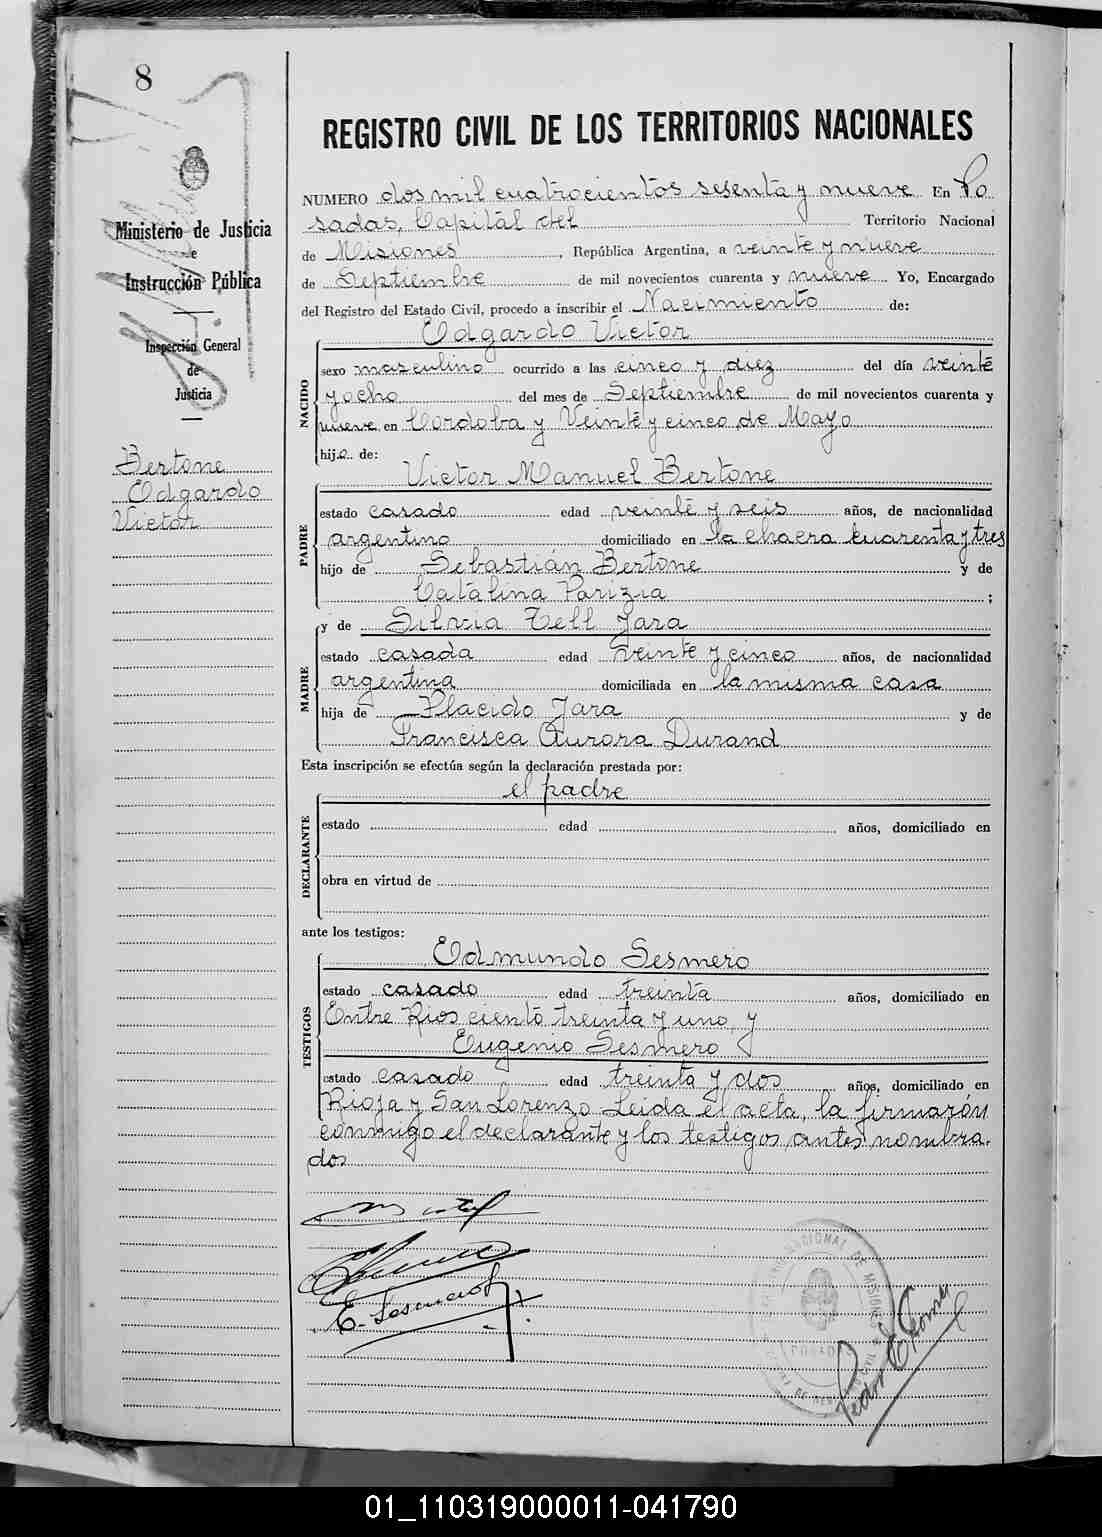 8
REGISTRO CIVIL DE LOS TERRITORIOS NACIONALES
Ministerio de Justicia
e
Instrucción Pública
Inspección General
de
Justicia
Bertone
Edgardo
Victor
NUMERO dos mil cuatrocientos sesenta y nueve En Po
sadas, Capital del Territorio Nacional
de Misiones, República Argentina, a veinte y nueve
de Septiembre de mil novecientos cuarenta y nueve Yo, Encargado
del Registro del Estado Civil, procedo a inscribir el Nacimiento de:
Edgardo Victor
NACIDO
sexo masculino ocurrido a las cinco y diez del día veinte
y ocho del mes de Septiembre de mil novecientos cuarenta y
nueve en Cordoba y Veinte y cinco de Mayo
hijo de:
Victor Manuel Bertone
PADRE
estado casado edad veinte y seis años, de nacionalidad
argentino domiciliado en la chacra cuarenta y tres
hijo de Sebastián Bertone y de
Catalina Parizia ;
y de Silvia Tell Jara
MADRE
estado casada edad veinte y cinco años, de nacionalidad
argentina domiciliada en la misma casa
hija de Placido Jara y de
Francisca Aurora Durand
Esta inscripción se efectúa según la declaración prestada por:
el padre
DECLARANTE
estado edad años, domiciliado en
obra en virtud de
ante los testigos:
Edmundo Sesmero
TESTIGOS
estado casado edad treinta años, domiciliado en
Entre Rios ciento treinta y uno, y
Eugenio Sesmero
estado casado edad treinta y dos años, domiciliado en
Rioja y San Lorenzo Leida el acta, la firmarón
conmigo el declarante y los testigos antes nombra.
dos
E. Sesmero
NACIONAL DE MISIONES
POSADAS
Pedro E Gomez
01_110319000011-041790